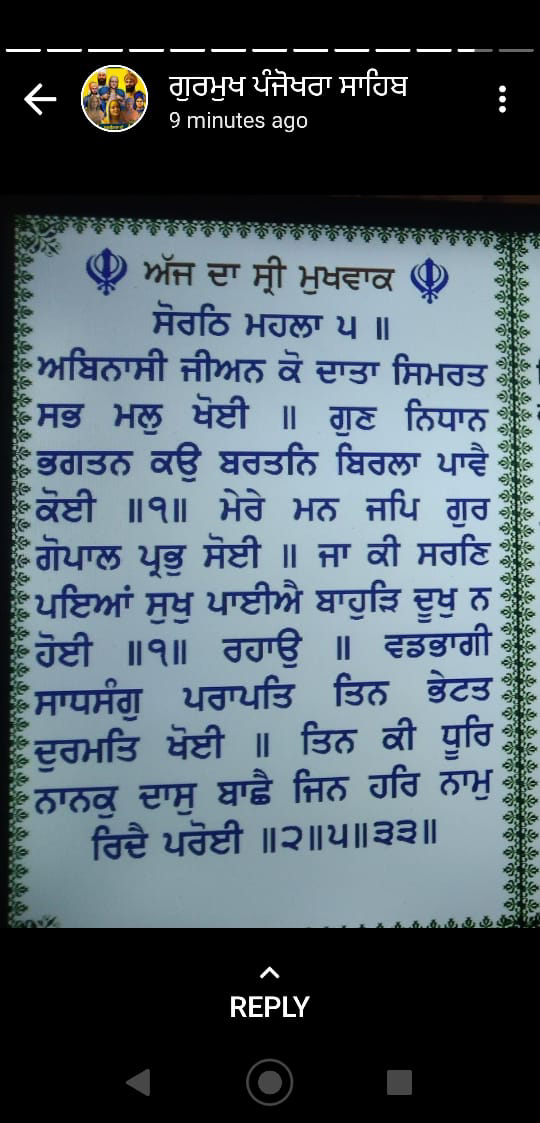 ਗੁਰਮੁਖ ਪੰਜੋਖਰਾ ਸਾਹਿਬ
9 minutes ago
ਅੱਜ ਦਾ ਸ੍ਰੀ ਮੁਖਵਾਕ
ਸੋਰਠਿ ਮਹਲਾ ੫ ॥
ਅਬਿਨਾਸੀ ਜੀਅਨ ਕੋ ਦਾਤਾ ਸਿਮਰਤ
ਸਭ ਮਲੁ ਖੋਈ ॥ ਗੁਣ ਨਿਧਾਨ
ਭਗਤਨ ਕਉ ਬਰਤਨਿ ਬਿਰਲਾ ਪਾਵੈ
ਕੋਈ ॥੧॥ ਮੇਰੇ ਮਨ ਜਪਿ ਗੁਰ
ਗੋਪਾਲ ਪ੍ਰਭੁ ਸੋਈ ॥ ਜਾ ਕੀ ਸਰਣਿ
ਪਇਆਂ ਸੁਖੁ ਪਾਈਐ ਬਾਹੁੜਿ ਦੂਖੁ ਨ
ਹੋਈ ॥੧॥ ਰਹਾਉ ॥ ਵਡਭਾਗੀ
ਸਾਧਸੰਗੁ ਪਰਾਪਤਿ ਤਿਨ ਭੇਟਤ
ਦੁਰਮਤਿ ਖੋਈ ॥ ਤਿਨ ਕੀ ਧੂਰਿ
ਨਾਨਕੁ ਦਾਸੁ ਬਾਛੈ ਜਿਨ ਹਰਿ ਨਾਮੁ
ਰਿਦੈ ਪਰੋਈ ॥੨॥੫॥੩੩॥
REPLY